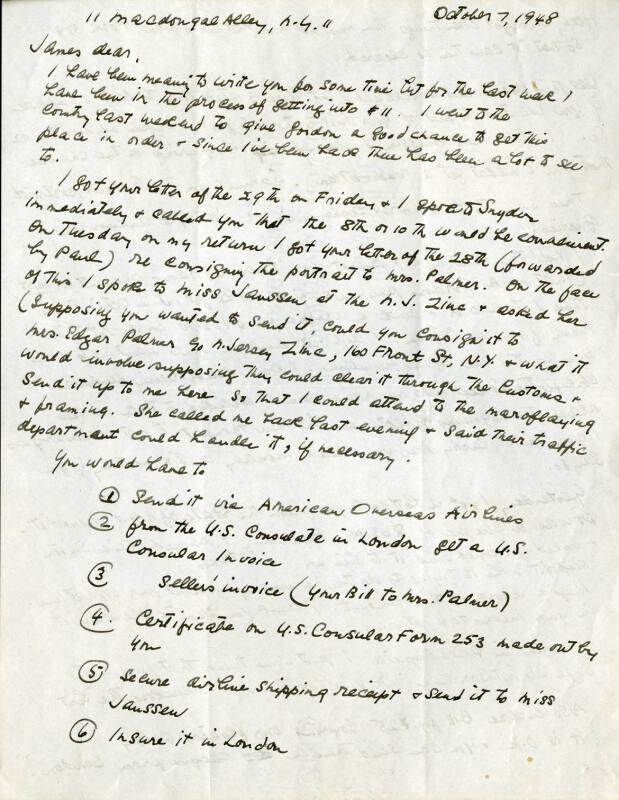 11 Macdougal Alley, N.Y. 11
October 7, 1948
James dear,
I have been meaning to write you for some time but for the last week I
have been in the process of getting into #11. I went to the
Country last weekend to give Gordon a good chance to get this
place in order & since I've been back there has been a lot to see
to.
I got your letter of the 29th on Friday & I spoke to Snyder
immediately & called you that the 8th or 10th would be convenient.
On Tuesday on my return I got your letter of the 28th (forwarded
by Paul) re consigning the portrait to Mrs. Palmer. On the face
of this I spoke to Miss Janssen at the N.J. Zinc & asked her
(Supposing you wanted to send it, could you consign it to
Mrs. Edgar Palmer c/o N. Jersey Zinc, 160 Front St, N.Y. & what it
would involve supposing they could clear it through the Customs &
Send it up to me here so that I could attend to the maroflaying
& framing. She called me back last evening & said their traffic
department could handle it, if necessary.
You would have to
① Send it via American Overseas Airlines
② from the U.S. Consulate in London get a U.S.
Consular Invoice
③ Seller's invoice (your Bill to Mrs. Palmer)
④. Certificate on U.S. Consular Form 253 made out by
you
⑤ Secure airline shipping receipt & send it to Miss
Janssen
⑥ Insure it in London